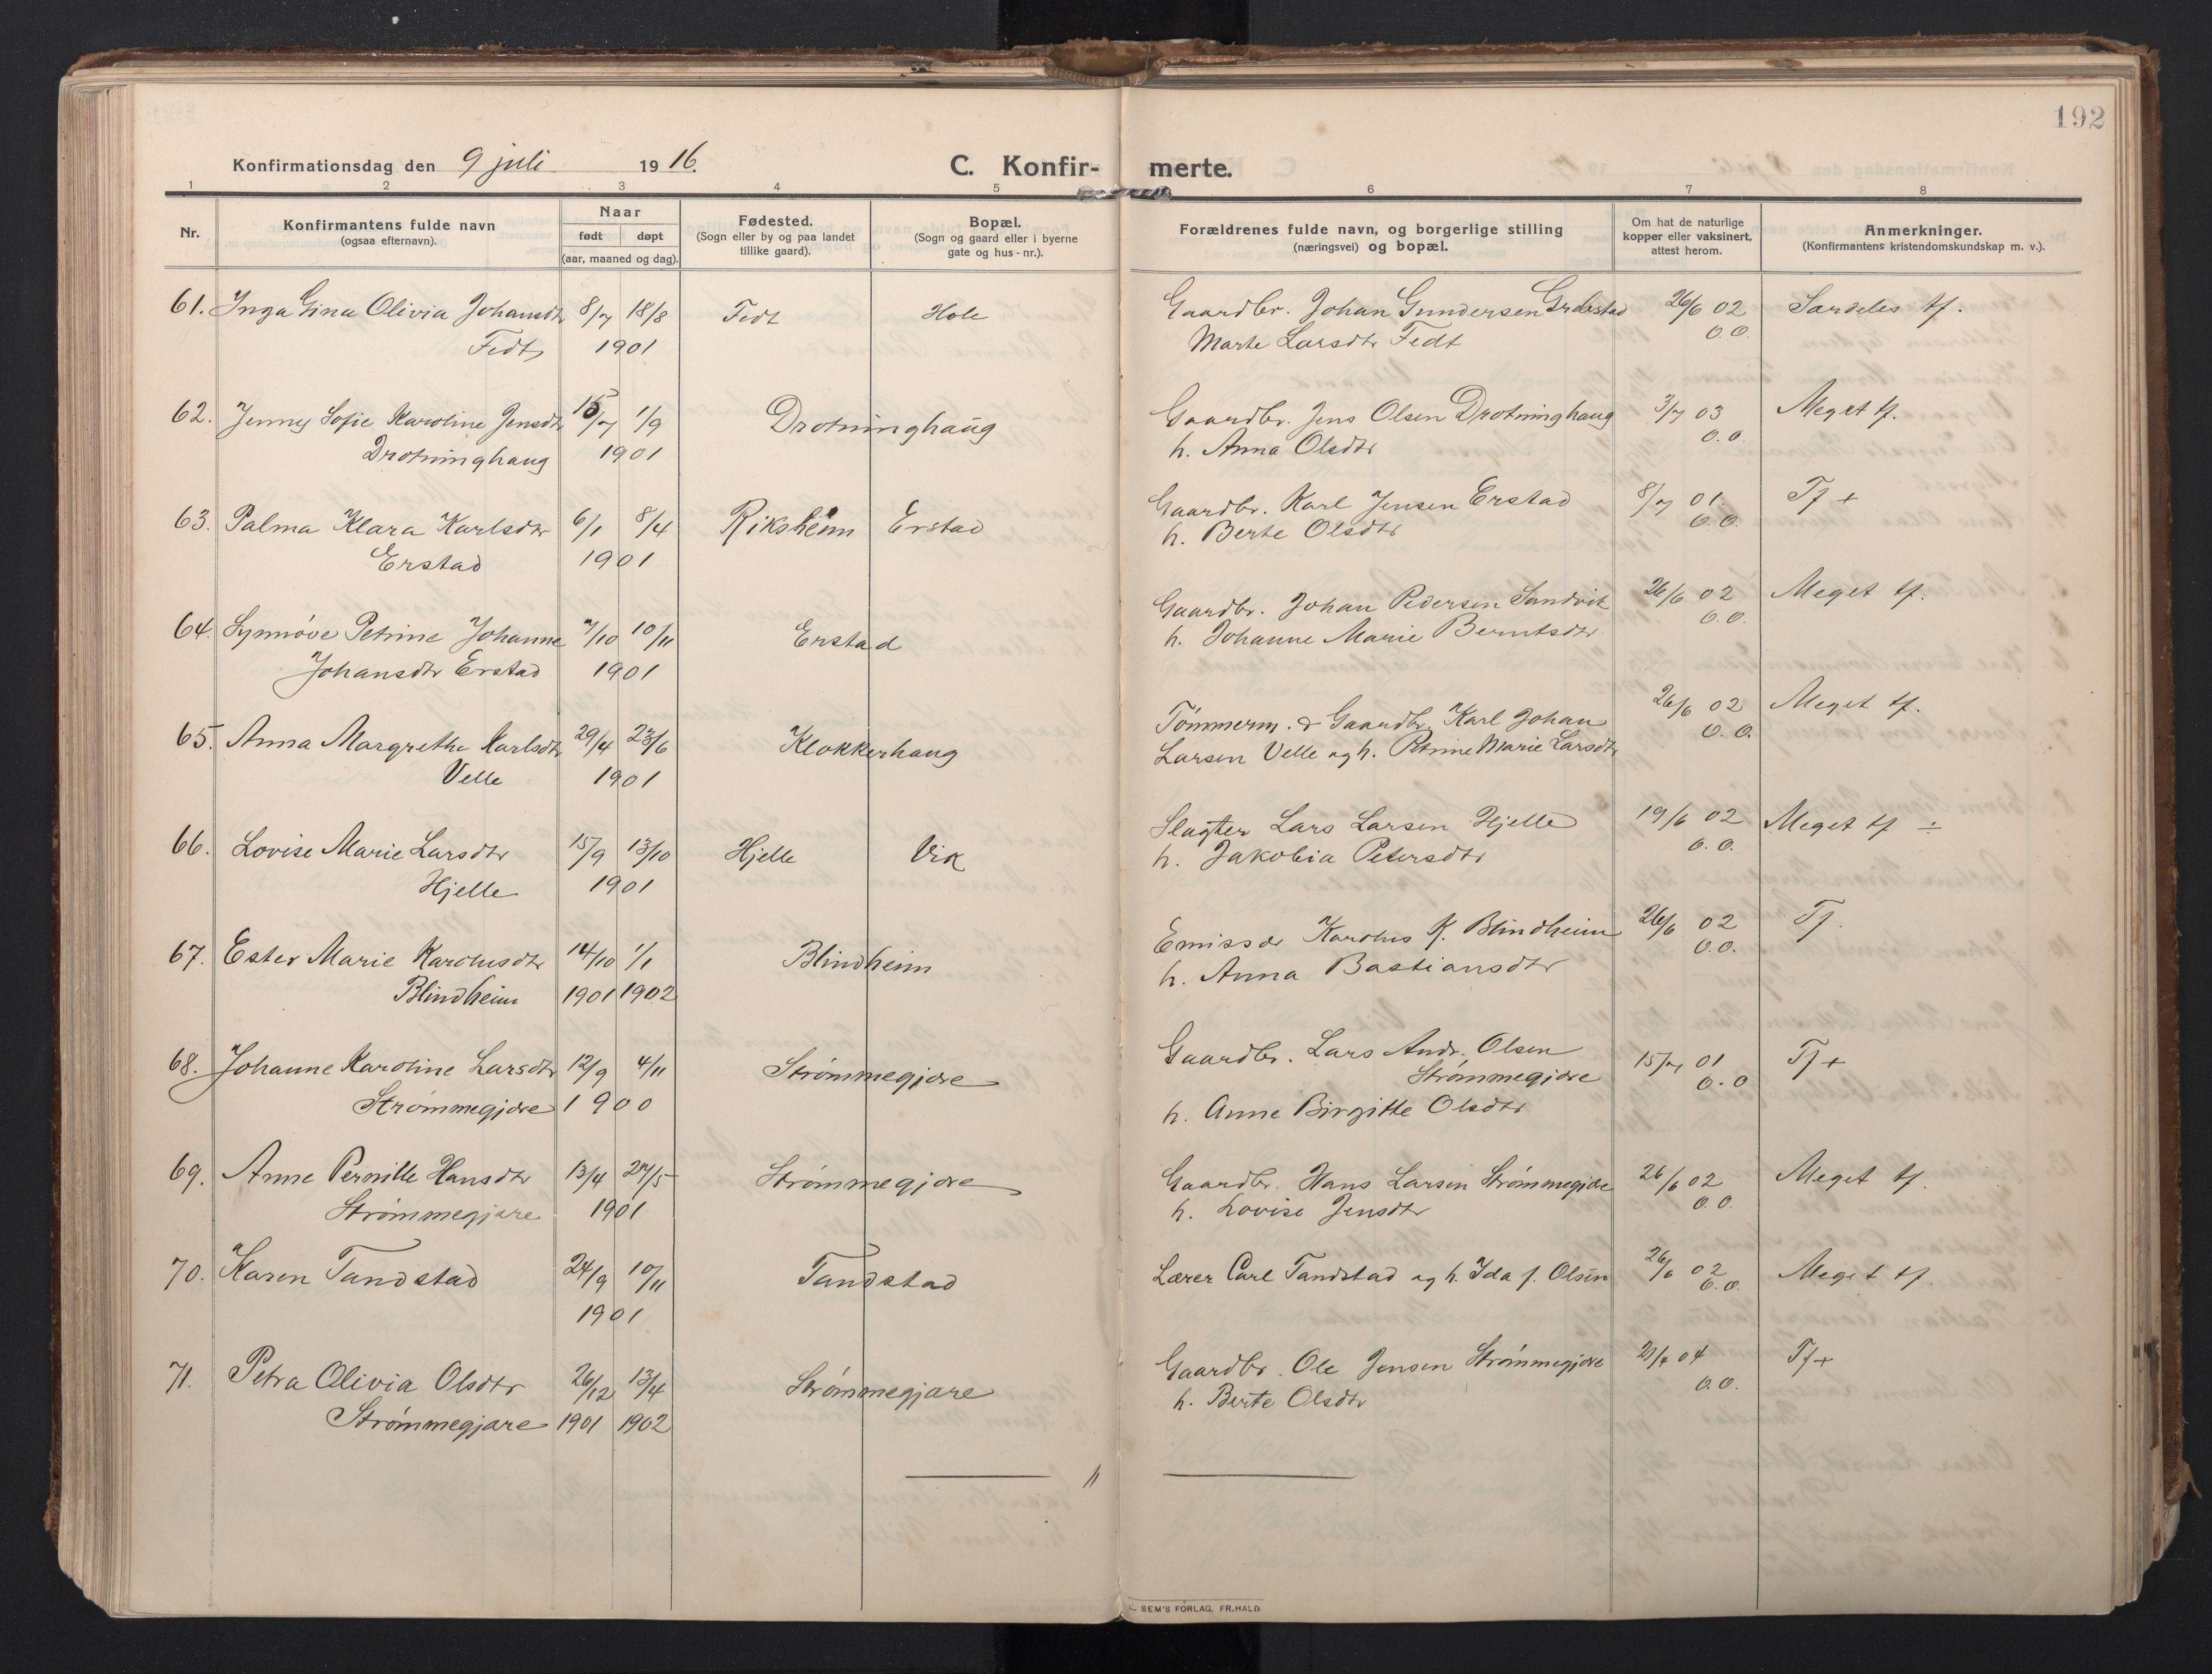 192
Konfirmationsdag den 9 juli 1916.
C. Konfir- merte.
1 2 3 4 5 6 7 8
Nr.
Konfirmantens fulde navn
(ogsaa efternavn).
Naar
født døpt
(aar, maaned og dag).
Fødested.
(Sogn eller by og paa landet
tillike gaard).
Bopæl.
(Sogn og gaard eller i byerne
gate og hus-nr.).
Forældrenes fulde navn, og borgerlige stilling
(næringsvei) og bopæl.
Om hat de naturlige
kopper eller vaksinert,
attest herom.
Anmerkninger.
(Konfirmantens kristendomskundskap m. v.).
61. Inga Gina Olivia Johansdtr 8/7 18/8 Fedt Hole Gaardbr. Johan Gundersen 26/6 02 Særdeles tf.
Fedt 1901 Marte Larsdtr Fedt 0.0.
62. Jenny Sofie Karoline Jensdtr 15/7 1/9 Drotninghaug Gaardbr. Jens Olsen Drotninghaug 3/7 03 Meget tf.
Drotninghaug 1901 h. Anna Olsdtr 0.0.
63. Palma Klara Karlsdtr 6/1 8/4 Riksheim Erstad Gaardbr. Karl Jensen Erstad 8/7 01. Tf +
Erstad 1901 h. Berte Olsdtr 0.0.
64. Synnøve Petrine Johanne 7/10 10/11 Erstad Gaardbr. Johan Pedersen Sandvik 26/6 02 Meget tf.
Johansdtr Erstad 1901 h. Johanne Marie Berntsdtr. 0.0.
65. Anna Margrethe Karlsdtr 29/4 23/6 Klokkerhaug Tømmerm. & Gaardbr. Karl Johan 26/6 02 Meget tf.
Velle 1901 Larsen Velle og h. Petrine Marie Larsdtr 0.0.
66. Lovise Marie Larsdtr 15/9 13/10 Hjelle Vik Slagter Lars Larsen Hjelle 19/6 02 Meget tf ÷
Hjelle 1901 h. Jakobia Petersdtr 0.0.
67. Ester Marie Karolusdtr 14/10 1/1 Blindheim Emissær Karolus K. Blindheim 26/6 02 Tf.
Blindheim 1901 1902 h. Anna Bastiansdtr 0.0.
68. Johanne Karoline Larsdtr 12/9 4/11 Strømmegjære Gaardbr. Lars Andr. Olsen 15/7 01 Tf +
Strømmegjære 1900 Strømmegjære 0.0
h. Anne Birgitte Olsdtr
69. Anne Pernille Hansdtr 13/4 27/5 Strømmegjære Gaardbr. Hans Larsen Strømmegjære 26/6 02 Meget tf.
Strømmegjære 1901 h. Lovise Jensdtr 0.0.
70. Karen Tandstad 24/9 10/11 Tandstad Lærer Carl Tandstad og h. Ida f. Olsen 26/6 02 Meget tf.
1901 0.0.
71. Petra Olivia Olsdtr 26/12 13/4 Strømmegjære Gaardbr. Ole Jensen Strømmegjære 04 Tf +
Strømmegjære 1901 1902 h. Berte Olsdtr 0.0.
SEM'S FORLAG, FR.HALD.